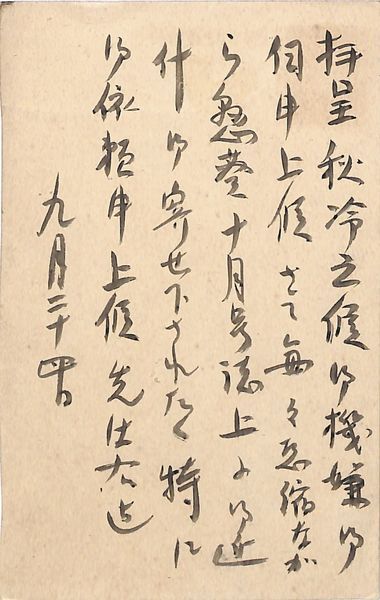 拝呈秋冷之候御機嫌御
伺申上候さて毎々恐縮なが
ら懸葵十月号誌上に御近
什御寄せ下されたく特に
御依頼申上候先は右迄
九月二十四日